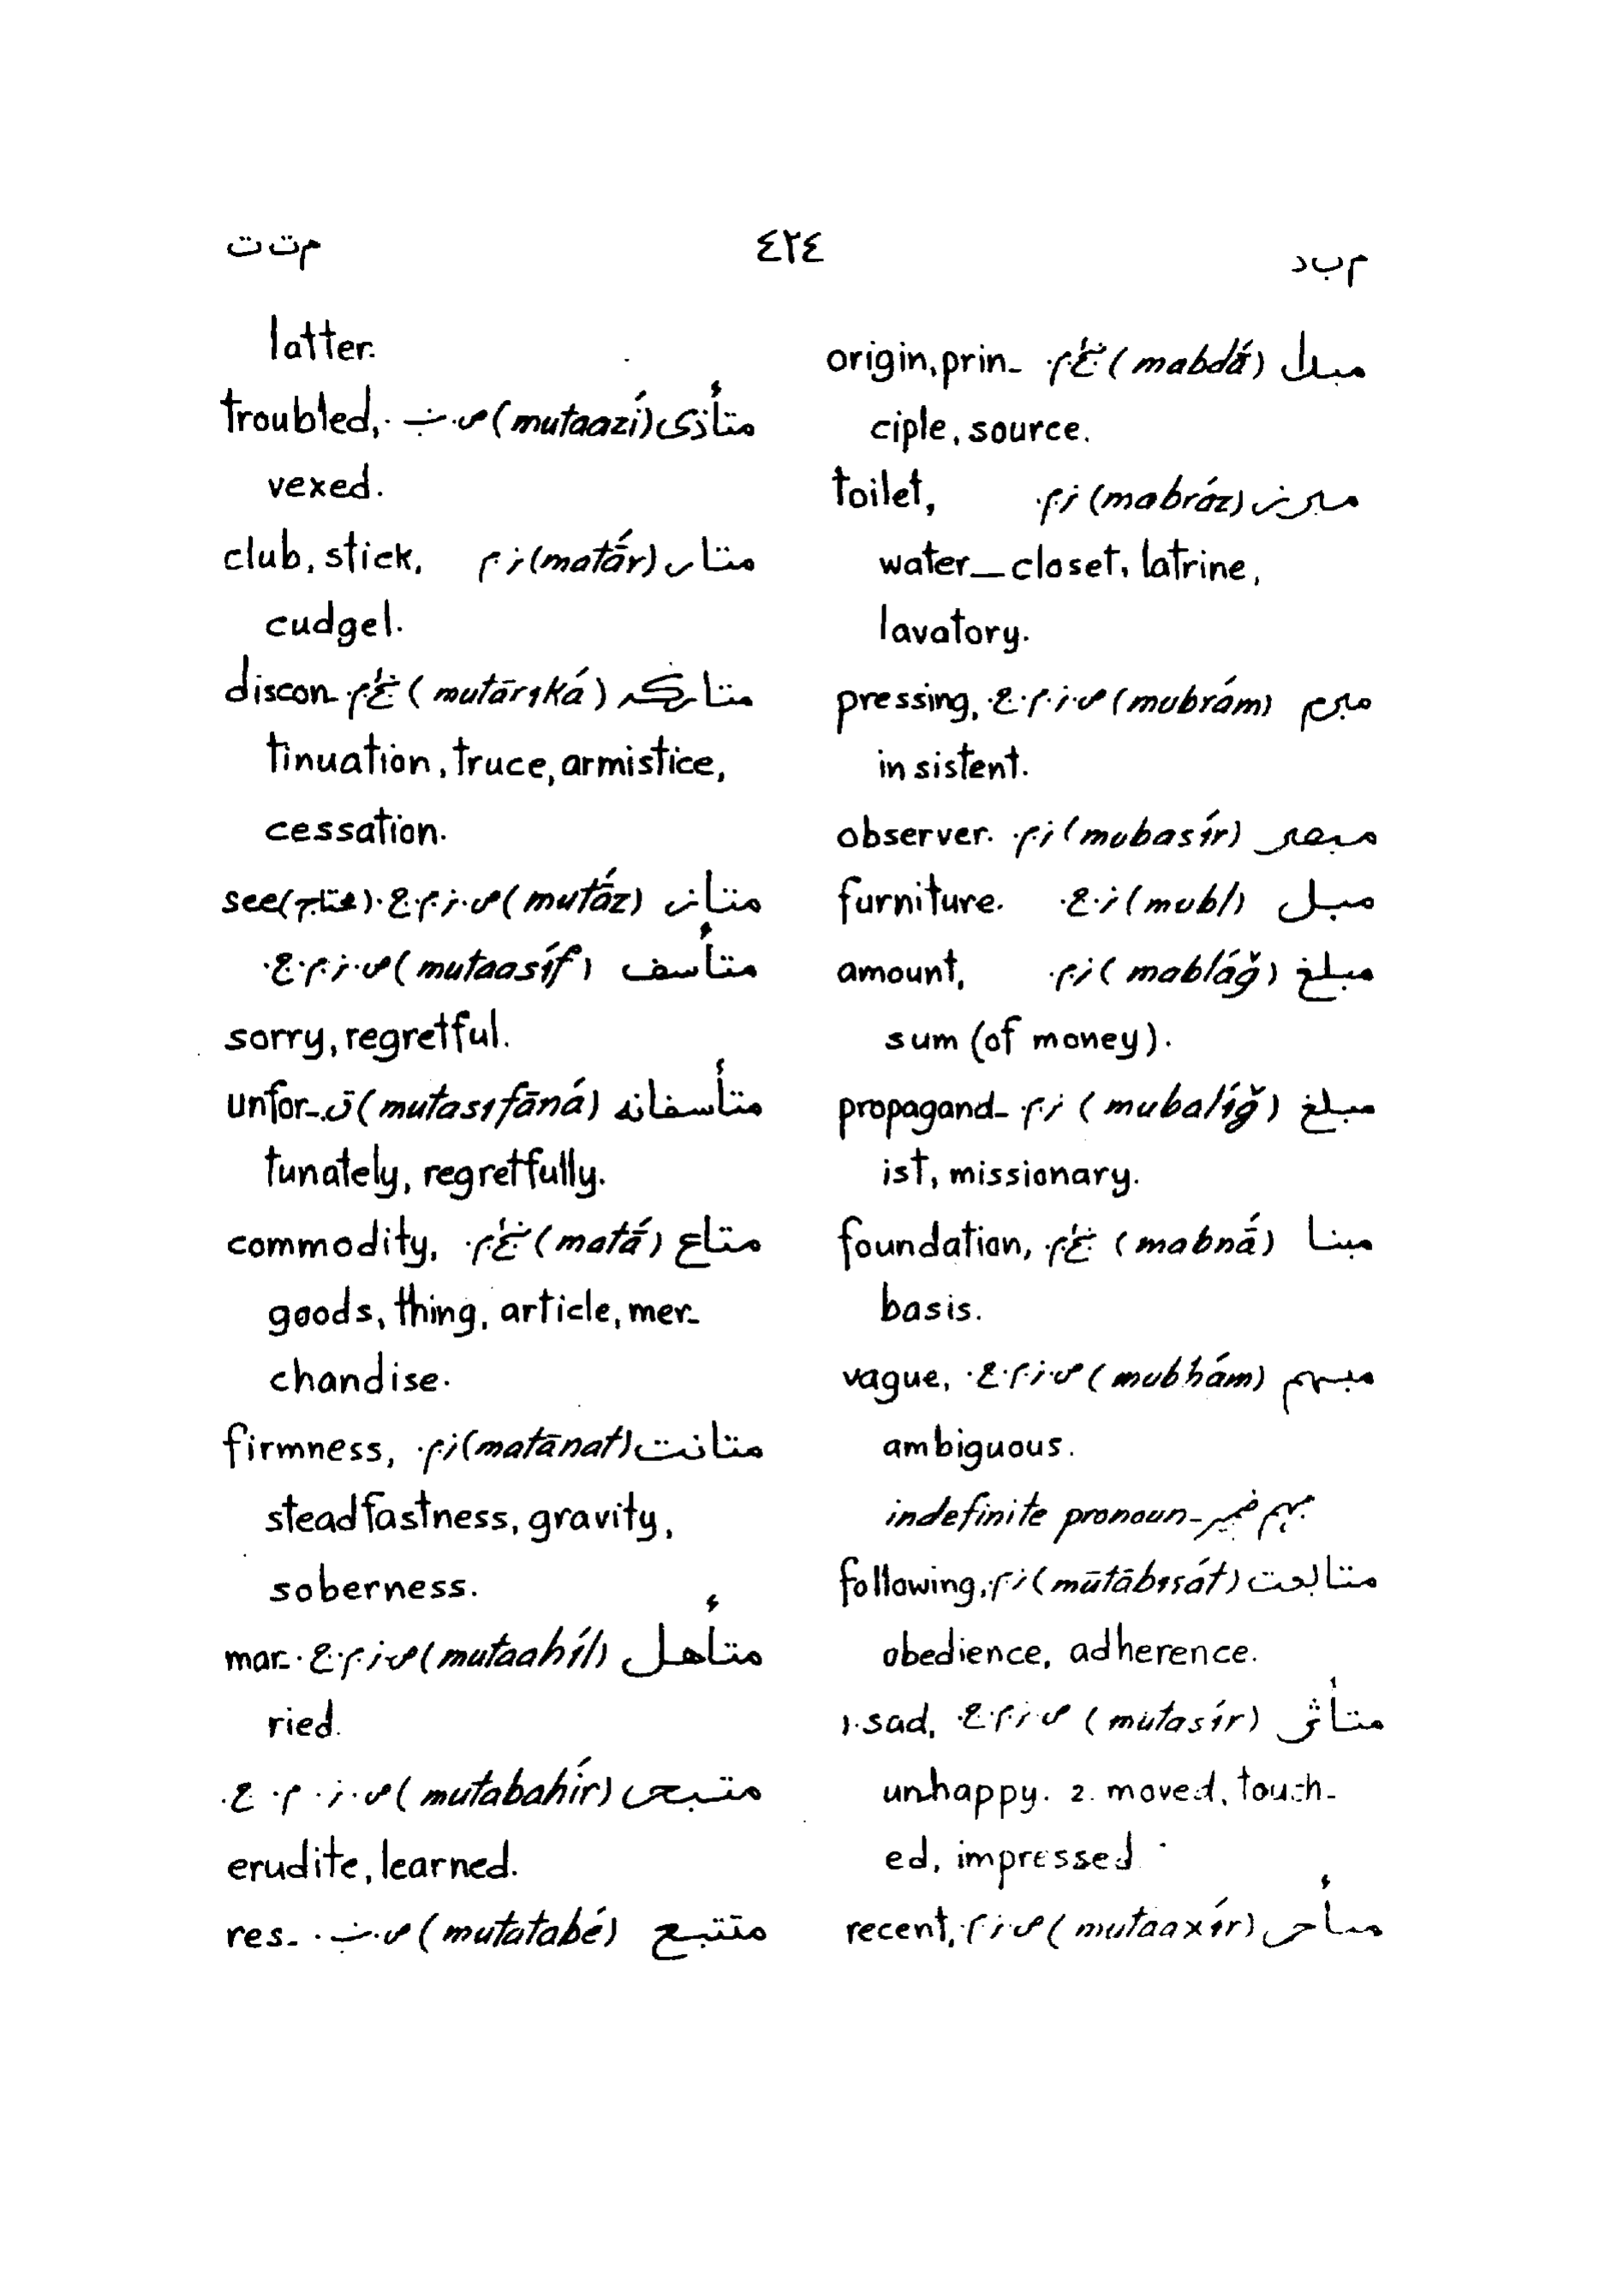 م ب د ٤٢٤ م ت ت
مبدأ (mabdā́) غ‍.م. origin, prin-
ciple, source.
مبرز (mabráz) ز.م. toilet,
water-closet, latrine,
lavatory.
مبرم (mubrám) ص.ز.م.ع. pressing,
insistent.
مبصر (mubasír) ز.م. observer.
مبل (mubl) ز.ع. furniture.
مبلغ (mabláğ) ز.م. amount,
sum (of money).
مبلغ (mubalíğ) ز.م. propagand-
ist, missionary.
مبنا (mabnā́) غ‍.م. foundation,
basis.
مبهم (mubhám) ص.ز.م.ع. vague,
ambiguous.
مبهم ضمیر- indefinite pronoun
متابعت ز.م. following,
obedience, adherence.
متأثر (mutasír) ص.ز.م.ع. 1. sad,
unhappy. 2. moved, touch-
ed, impressed
متأخر (mutaaxír) ص.ز.م. recent,
latter.
متأذی (mutaazí) troubled,
vexed.
متار (matā́r) ز.م club, stick,
cudgel.
متارکه (mutārıká) غ‍.م. discon-
tinuation, truce, armistice,
cessation.
متاز (mutā́z) ص.ز.م.ع. see
متأسف (mutaasíf) ص.ز.م.ع.
sorry, regretful.
متأسفانه (mutasıfāná) ق. unfor-
tunately, regretfully.
متاع (matā́) غ‍.م. commodity,
goods, thing, article, mer-
chandise.
متانت (matānat) ز.م. firmness,
steadfastness, gravity,
soberness.
متأهل (mutaahíl) ص.ز.م.ع. mar-
ried.
متبحر (mutabahír) ص.ز.م.ع.
erudite, learned.
متتبع (mutatabé) res-